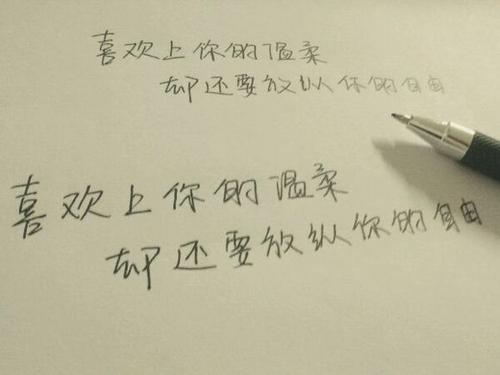 喜欢上你的温柔
却还要放纵你的自由
喜欢上你的温柔
却还要放纵你的自由